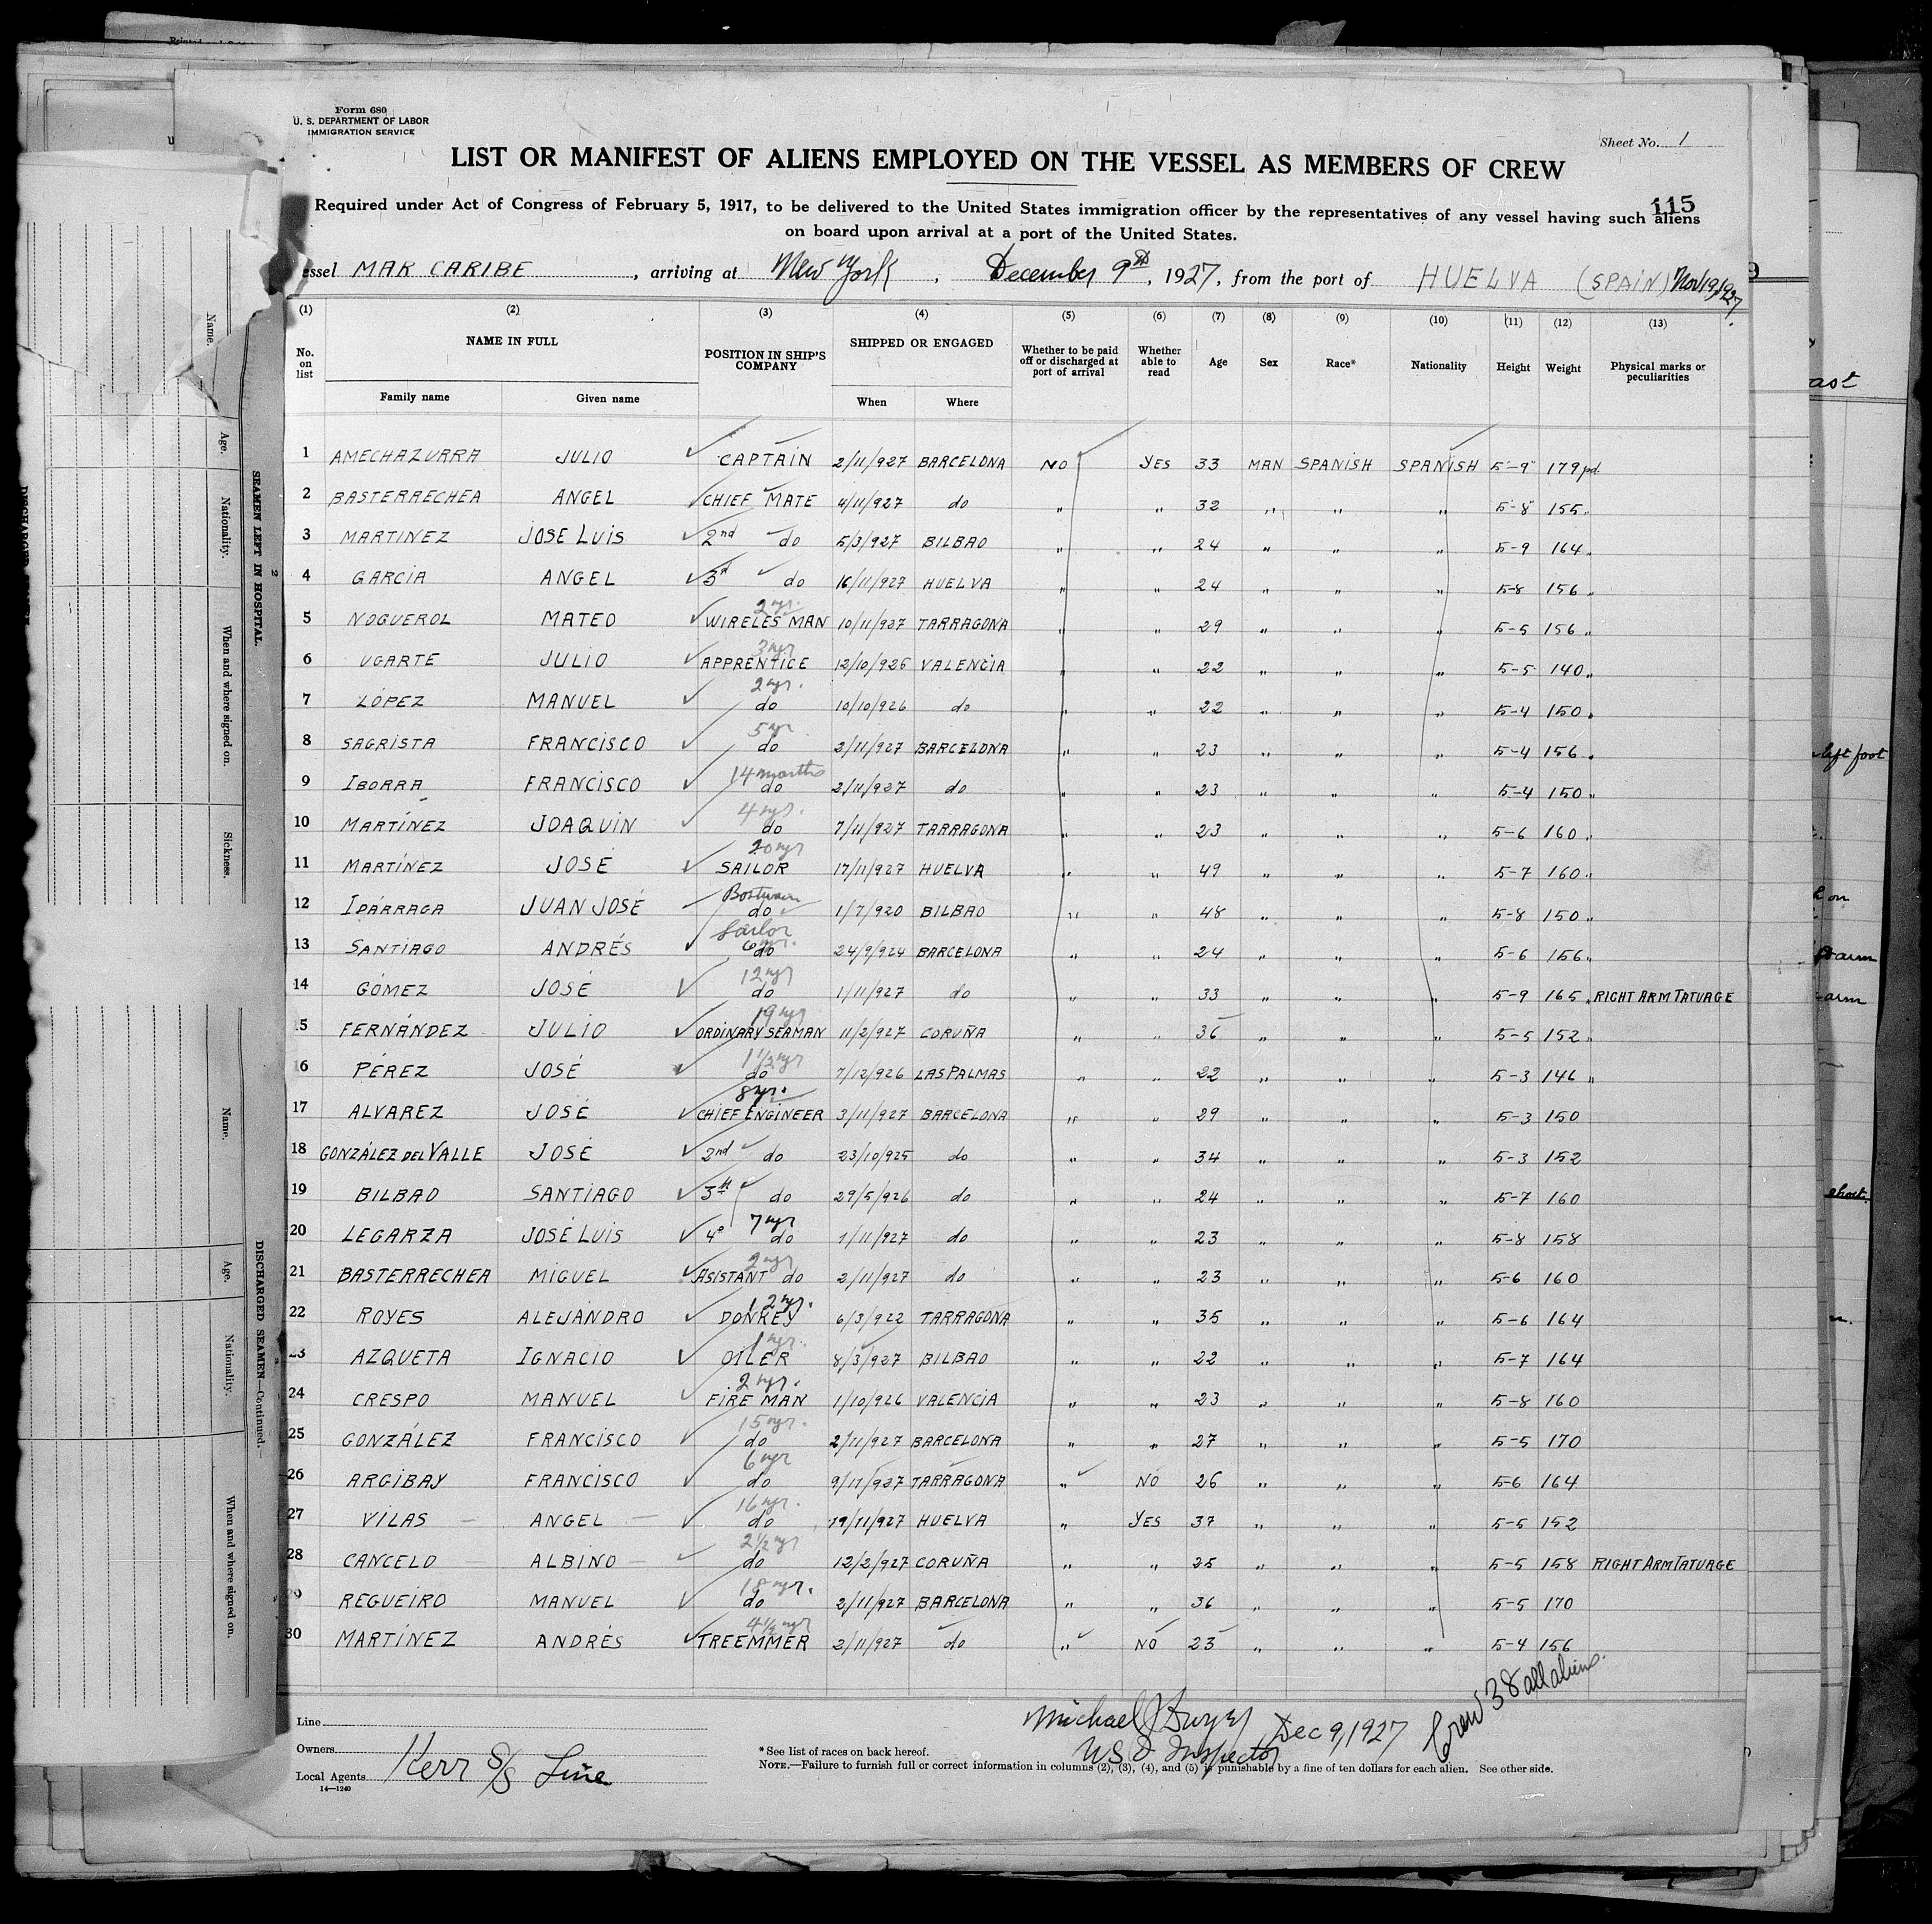 Form 680
U. S. DEPARTMENT OF LABOR
IMMIGRATION SERVICE
Sheet No. 1
LIST OR MANIFEST OF ALIENS EMPLOYED ON THE VESSEL AS MEMBERS OF CREW
115
Required under Act of Congress of February 5, 1917, to be delivered to the United States immigration officer by the representatives of any vessel having such aliens
on board upon arrival at a port of the United States.
essel MAR CARIBE, arriving at New York, December 9th, 1927, from the port of HUELVA (SPAIN) Nov 19, 1927.
(1) (2) (3) (4) (5) (6) (7) (8) (9) (10) (11) (12) (13)
No. on list NAME IN FULL Family name Given name POSITION IN SHIP'S COMPANY SHIPPED OR ENGAGED When Where Whether to be paid off or discharged at port of arrival Whether able to read Age Sex Race* Nationality Height Weight Physical marks or peculiarities
1 AMECHAZURRA JULIO CAPTAIN 2/11/927 BARCELONA NO YES 33 MAN SPANISH SPANISH 5-9" 179 pd.
2 BASTERRECHEA ANGEL CHIEF MATE 4/11/927 do " " 32 " " " 5-8" 155 "
3 MARTINEZ JOSE LUIS 2nd do 5/3/927 BILBAO " " 24 " " " 5-9 164 "
4 GARCIA ANGEL 3d do 16/11/927 HUELVA " " 24 " " " 5-8 156 "
5 NOGUEROL MATEO 2 yr. WIRELES MAN 10/11/927 TARRAGONA " " 29 " " " 5-5 156 "
6 UGARTE JULIO 3 yr APPRENTICE 12/10/926 VALENCIA " " 22 " " " 5-5 140 "
7 LÓPEZ MANUEL 2 yr. do 10/10/926 do " " 22 " " " 5-4 150 "
8 SAGRISTA FRANCISCO 5 yr do 2/11/927 BARCELONA " " 23 " " " 5-4 156 "
9 IBORRA FRANCISCO 14 months do 2/11/927 do " " 23 " " " 5-4 150 "
10 MARTÍNEZ JOAQUIN 4 yr. do 7/11/927 TARRAGONA " " 23 " " " 5-6 160 "
11 MARTÍNEZ JOSÉ 20 yr SAILOR 17/11/927 HUELVA " " 49 " " " 5-7 160 "
12 IPÁRRAGA JUAN JOSÉ Bostwain do 1/7/920 BILBAO " " 48 " " " 5-8 150 "
13 SANTIAGO ANDRÉS Sailor 6 yr. do 24/9/924 BARCELONA " " 24 " " " 5-6 156 "
14 GÓMEZ JOSÉ 12 yr do 1/11/927 do " " 33 " " " 5-9 165 " RIGHT ARM TATUAGE
15 FERNÁNDEZ JULIO 19 yr ORDINARY SEAMAN 11/2/927 CORUÑA " " 36 " " " 5-5 152 "
16 PÉREZ JOSÉ 1 1/2 yr do 7/12/926 LAS PALMAS " " 22 " " " 5-3 146 "
17 ALVAREZ JOSÉ 8 yr. CHIEF ENGINEER 3/11/927 BARCELONA " " 29 " " " 5-3 150
18 GONZÁLEZ DEL VALLE JOSÉ 2nd do 23/10/925 do " " 34 " " " 5-3 152
19 BILBAO SANTIAGO 3th do 29/5/926 do " " 24 " " " 5-7 160
20 LEGARZA JOSÉ LUIS 4º 7 yr do 1/11/927 do " " 23 " " " 5-8 158
21 BASTERRECHEA MIGUEL 2 yr ASISTANT do 2/11/927 do " " 23 " " " 5-6 160
22 ROYES ALEJANDRO 12 yr. DONKEY 6/3/922 TARRAGONA " " 35 " " " 5-6 164
23 AZQUETA IGNACIO 1 yr. OILER 8/3/927 BILBAO " " 22 " " " 5-7 164
24 CRESPO MANUEL 2 yr. FIRE MAN 1/10/926 VALENCIA " " 23 " " " 5-8 160
25 GONZÁLEZ FRANCISCO 15 yr. do 2/11/927 BARCELONA " " 27 " " " 5-5 170
26 ARGIBAY FRANCISCO 6 yr do 9/11/927 TARRAGONA " NO 26 " " " 5-6 164
27 VILAS ANGEL 16 yr. do 19/11/927 HUELVA " YES 37 " " " 5-5 152
28 CANCELO ALBINO 2 1/2 yr do 12/2/927 CORUÑA " " 25 " " " 5-5 158 RIGHT ARM TATUAGE
29 REGUEIRO MANUEL 18 yr. do 2/11/927 BARCELONA " " 36 " " " 5-5 170
30 MARTÍNEZ ANDRÉS 4 1/2 yr TREEMMER 2/11/927 do " NO 23 " " " 5-4 156
Crew 38 all aliens.
Line
Owners
Local Agents Kerr S/S Line
14—1240
Michael J Dwyer Dec 9, 1927
U S I Inspector
*See list of races on back hereof.
NOTE.—Failure to furnish full or correct information in columns (2), (3), (4), and (5) is punishable by a fine of ten dollars for each alien. See other side.
Name.
Age.
Nationality.
When and where signed on.
Sickness.
SEAMEN LEFT IN HOSPITAL.
2
Name.
Age.
Nationality.
When and where signed on.
DISCHARGED SEAMEN—Continued.
left foot
on
arm
arm